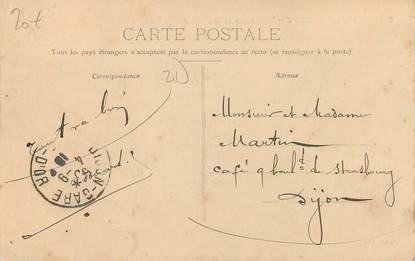 20€
CARTE POSTALE
Tous les pays étrangers n'acceptent pas la correspondance au recto (se renseigner à la poste)
Correspondance
21
Adresse
DIJON-GARE
Monsieur et Madame
Martin
café 9 boul d de Strasbourg
Dijon